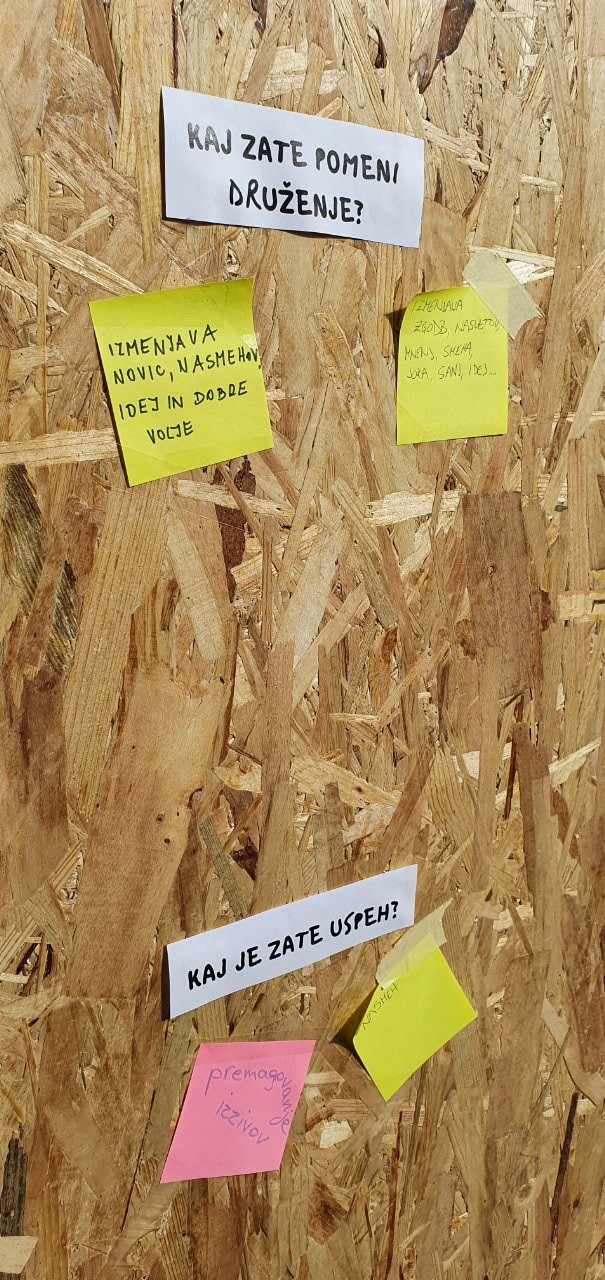 KAJ ZATE POMENI
DRUŽENJE?
IZMENJAVA
NOVIC, NASMEHOV,
IDEJ IN DOBRE
VOLJE
IZMENJAVA
ZGODB, NASVETOV
MNENJ, SMEHA,
JOKA, SANJ, IDEJ...
KAJ JE ZATE USPEH?
NASMEH
premagovanje
izzivov